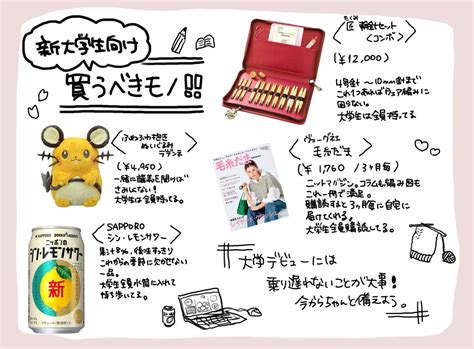 新大学生向け
買うべきモノ!!
たくみ
匠 輪針セット
<コンボ>
(¥12,000)
4号針〜10mm針まで
これ1つあればウェア編みに
困らない。
大学生は全員持ってる。
ふわふわ抱き
ぬいぐるみ
デデンネ
(¥4,950)
一緒に講義を聞けば
さみしくない!
大学生は全員持ってる。
ヴォーグ社
毛糸だま
(¥1,760 /3ヶ月毎)
ニットマガジン。コラムも編み図も
これ一冊で満足。
購読すると3ヶ月毎に自宅に
届けてくれる。
大学生全員購読してる。
毛糸だま
SAPPORO
シン・レモンサワー
果汁8%、後味すっきり
これからの季節に欠かせない
一品。
大学生全員水筒に入れて
持ち歩いてる。
SAPPORO
ニッポンの
シン・レモンサワー
新
大学デビューには
乗り遅れないことが大事!
今からちゃんと備えよう。